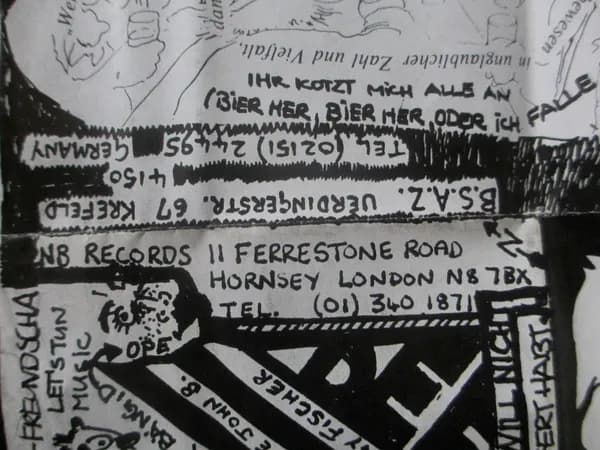 in unglaublicher Zahl und Vielfalt.
gewesen
IHR KOTZT MICH ALLE AN
(BIER HER, BIER HER, ODER ICH FALLE
B.S.A.Z. UERDINGERSTR. 67 KREFELD
4150
TEL (02151) 24495 GERMANY
NB RECORDS 11 FERRESTONE ROAD
HORNSEY LONDON N8 7BX
TEL. (01) 340 1871
FREUNDSCHA
LET'S TUN
MUSIC
OPE
BÄNG, D
E JOHN B.
NY FISCHER
WILL NICHT
ERT HABT.